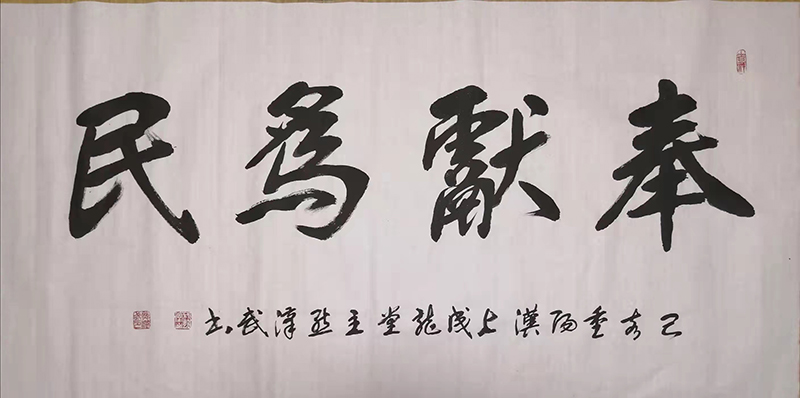 奉獻為民
己亥重陽漢上成龍堂主熊漢武書